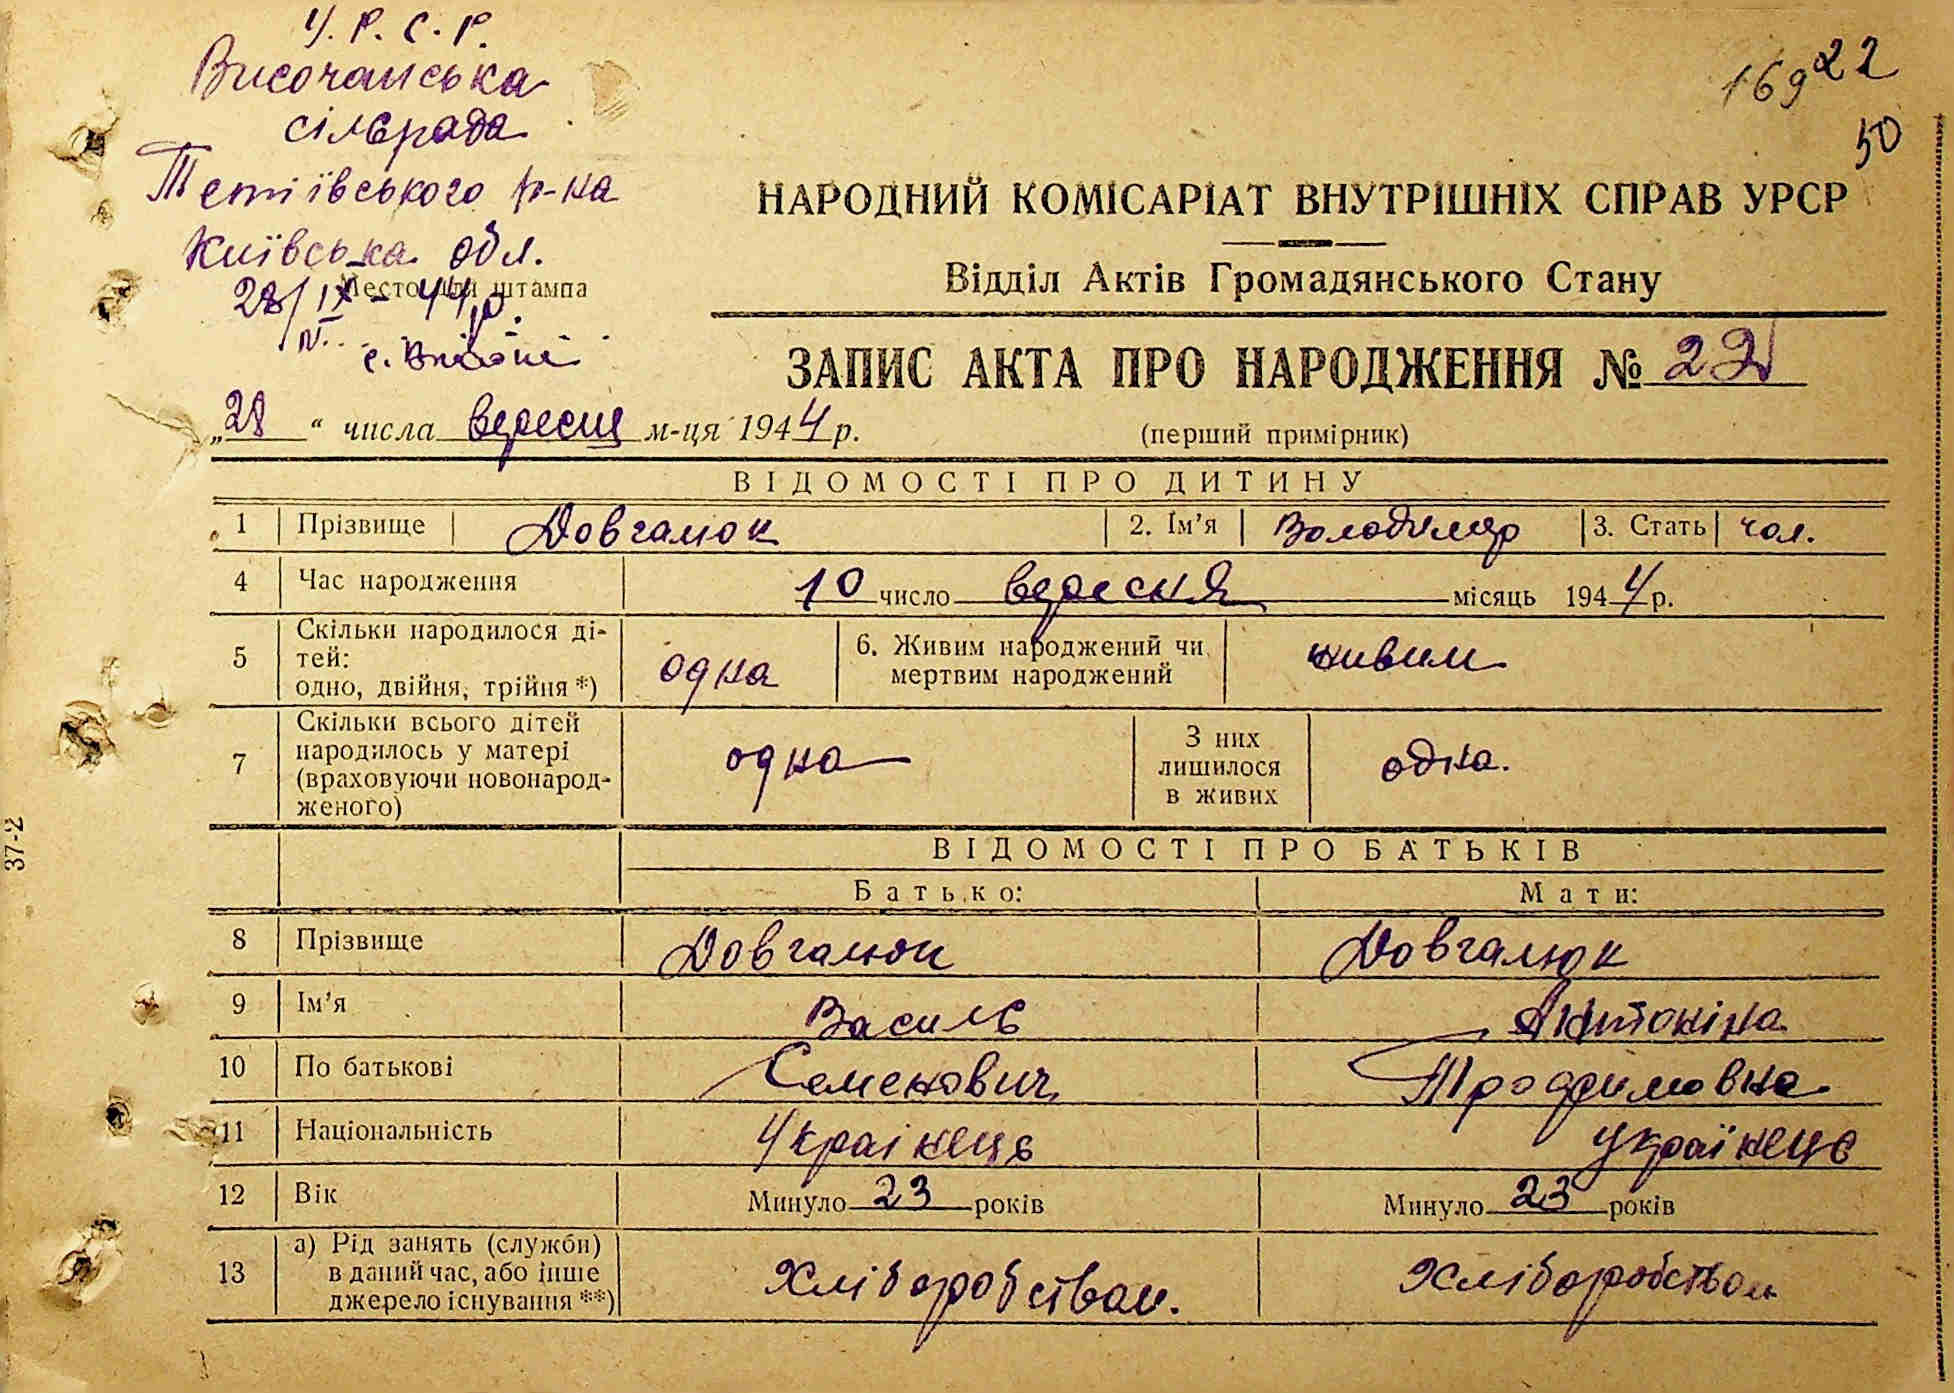 У. Р. С. Р.
Височанська
сільрада
Тетіївського р-на
Київська обл.
Место для штампа
28/IX - 44 р.
с.
169 22
50
НАРОДНИЙ КОМІСАРІАТ ВНУТРІШНІХ СПРАВ УРСР
Відділ Актів Громадянського Стану
ЗАПИС АКТА ПРО НАРОДЖЕННЯ № 22
„28 “ числа вересня м-ця 1944 р.
(перший примірник)
ВІДОМОСТІ ПРО ДИТИНУ
1 Прізвище Довгалюк 2. Ім’я Володимир 3. Стать чол.
4 Час народження 10 число вересня місяць 1944 р.
5 Скільки народилося ді-
тей:
одно, двійня, трійня *) одна
6. Живим народжений чи
мертвим народжений живим
7 Скільки всього дітей
народилось у матері
(враховуючи новонарод-
женого) одна
З них
лишилося
в живих одна.
ВІДОМОСТІ ПРО БАТЬКІВ
Батько: Мати:
8 Прізвище Довгалюк Довгалюк
9 Ім’я Василь Антоніна
10 По батькові Семенович Трофимовна
11 Національність Українець Українець
12 Вік Минуло 23 років Минуло 23 років
13 а) Рід занять (служби)
в даний час, або інше
джерело існування **) Хліборобством. Хліборобством
37-2